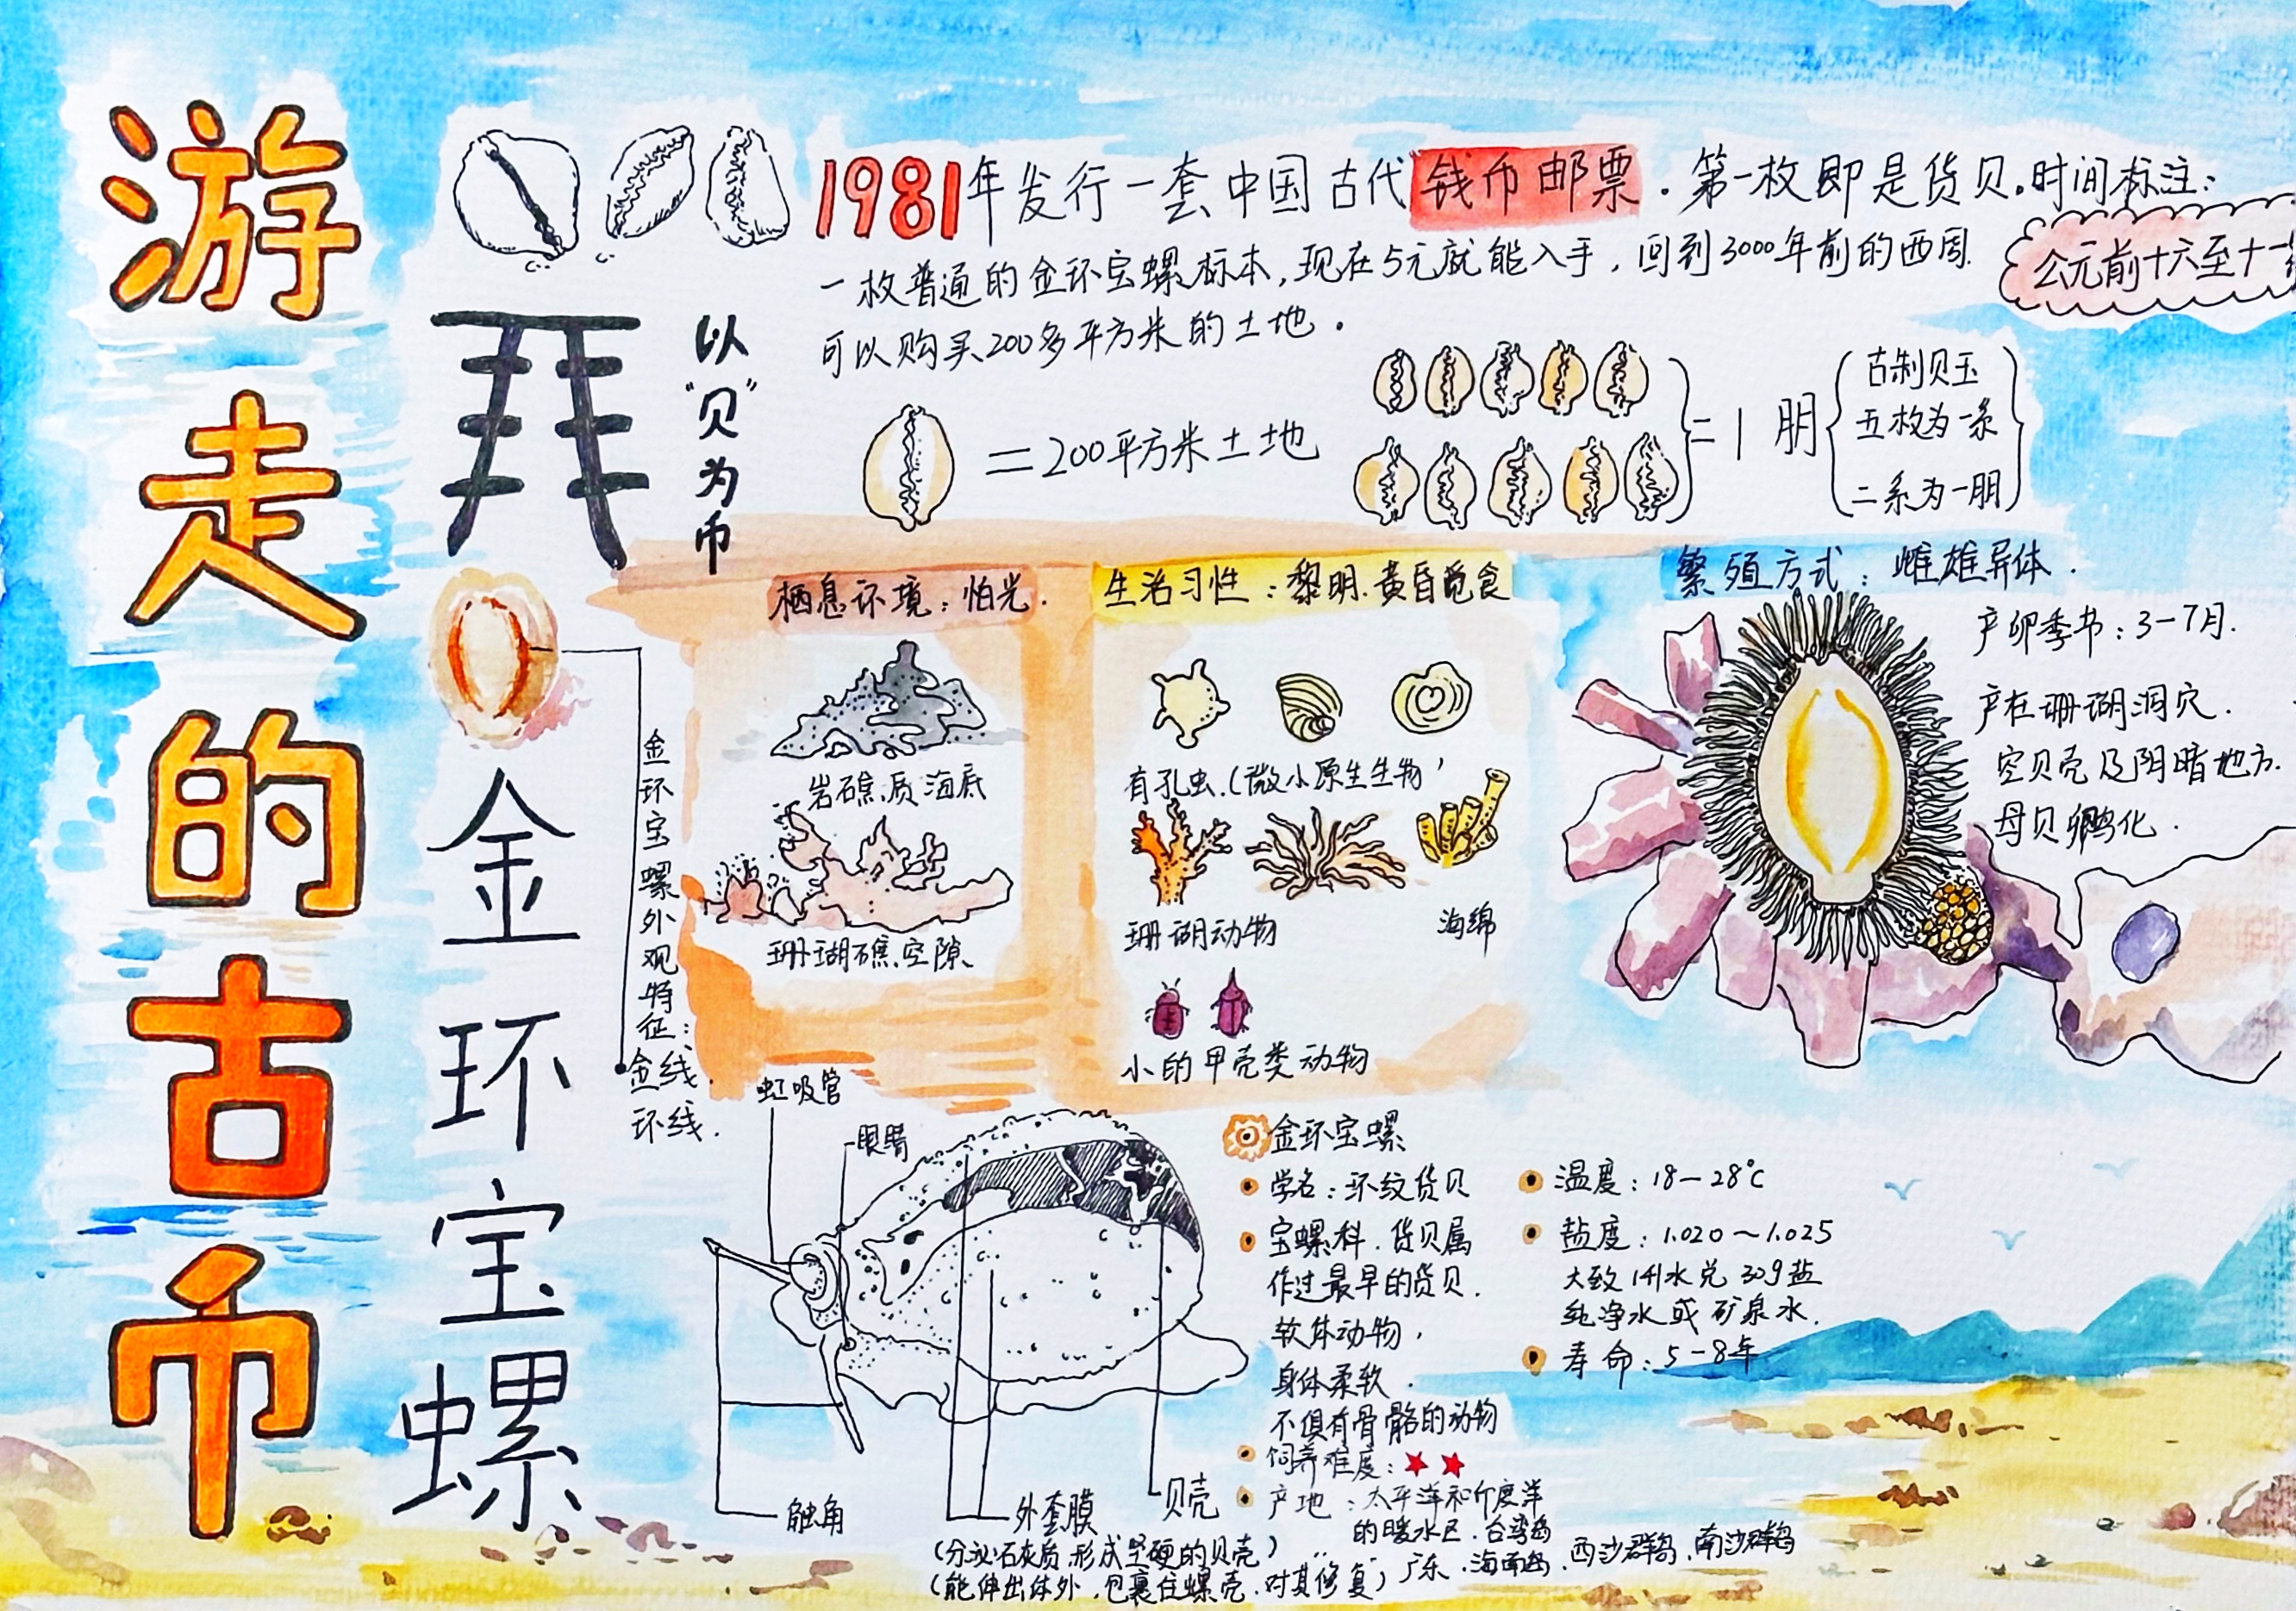 游走的古币
以“贝”为币
金环宝螺
1981年发行一套中国古代钱币邮票.第一枚即是货贝。时间标注:
公元前十六至十一
一枚普通的金环宝螺标本,现在5元就能入手,回到3000年前的西周.
可以购买200多平方米的土地.
=200平方米土地
=1朋
古制贝玉
五枚为一系
二系为一朋
金环宝螺外观特征:
金线.
环线.
栖息环境:怕光.
岩礁.质海底
珊瑚礁.空隙.
生活习性:黎明.黄昏觅食
有孔虫.(微小原生生物
珊瑚动物
海绵
小的甲壳类动物
繁殖方式:雌雄异体.
产卵季节:3-7月.
产在珊瑚洞穴.
空贝壳及阴暗地方.
母贝孵化.
虹吸管
眼睛
触角
外套膜
贝壳
(分泌石灰质.形成坚硬的贝壳)
(能伸出体外.包裹住螺壳.对其修复)
金环宝螺
学名:环纹货贝
宝螺科.货贝属
作过最早的货贝.
软体动物,
身体柔软.
不俱有骨骼的动物
饲养难度:
产地:太平洋和印度洋
的暖水区.台湾岛
广东.海南岛.西沙群岛.南沙群岛
温度:18-28℃
盐度:1.020~1.025
大致1升水兑30g盐
纯净水或矿泉水.
寿命:5-8年